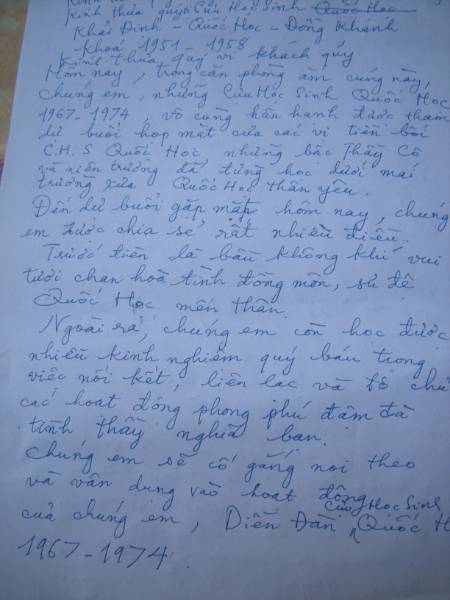 Kính thưa quý Cựu Học Sinh Quốc Học
Khải Định - Quốc Học - Đồng Khánh
Khoá 1951 - 1958
Kính thưa quý vị khách quý
Hôm nay, trong căn phòng ấm cúng này,
chúng em, những Cựu Học Sinh Quốc Học
1967-1974, vô cùng hân hạnh được tham
dự buổi họp mặt của các vị tiền bối
C.H.S Quốc Học những bậc Thầy Cô
và niên trưởng đã từng học dưới mái
trường xưa Quốc Học thân yêu.
Đến dự buổi gặp mặt hôm nay, chúng
em được chia sẻ rất nhiều điều.
Trước tiên là bầu không khí vui
tươi chan hoà tình đồng môn, sư đệ
Quốc Học mến thân.
Ngoài ra, chúng em còn học được
nhiều kinh nghiệm quý báu trong
việc nối kết, liên lạc và tổ chứ
các hoạt động phong phú đậm đà
tình thầy nghĩa bạn.
Chúng em sẽ cố gắng noi theo
và vận dụng vào hoạt động
của chúng em, Diễn Đàn Cựu Học Sinh Quốc H
1967-1974.